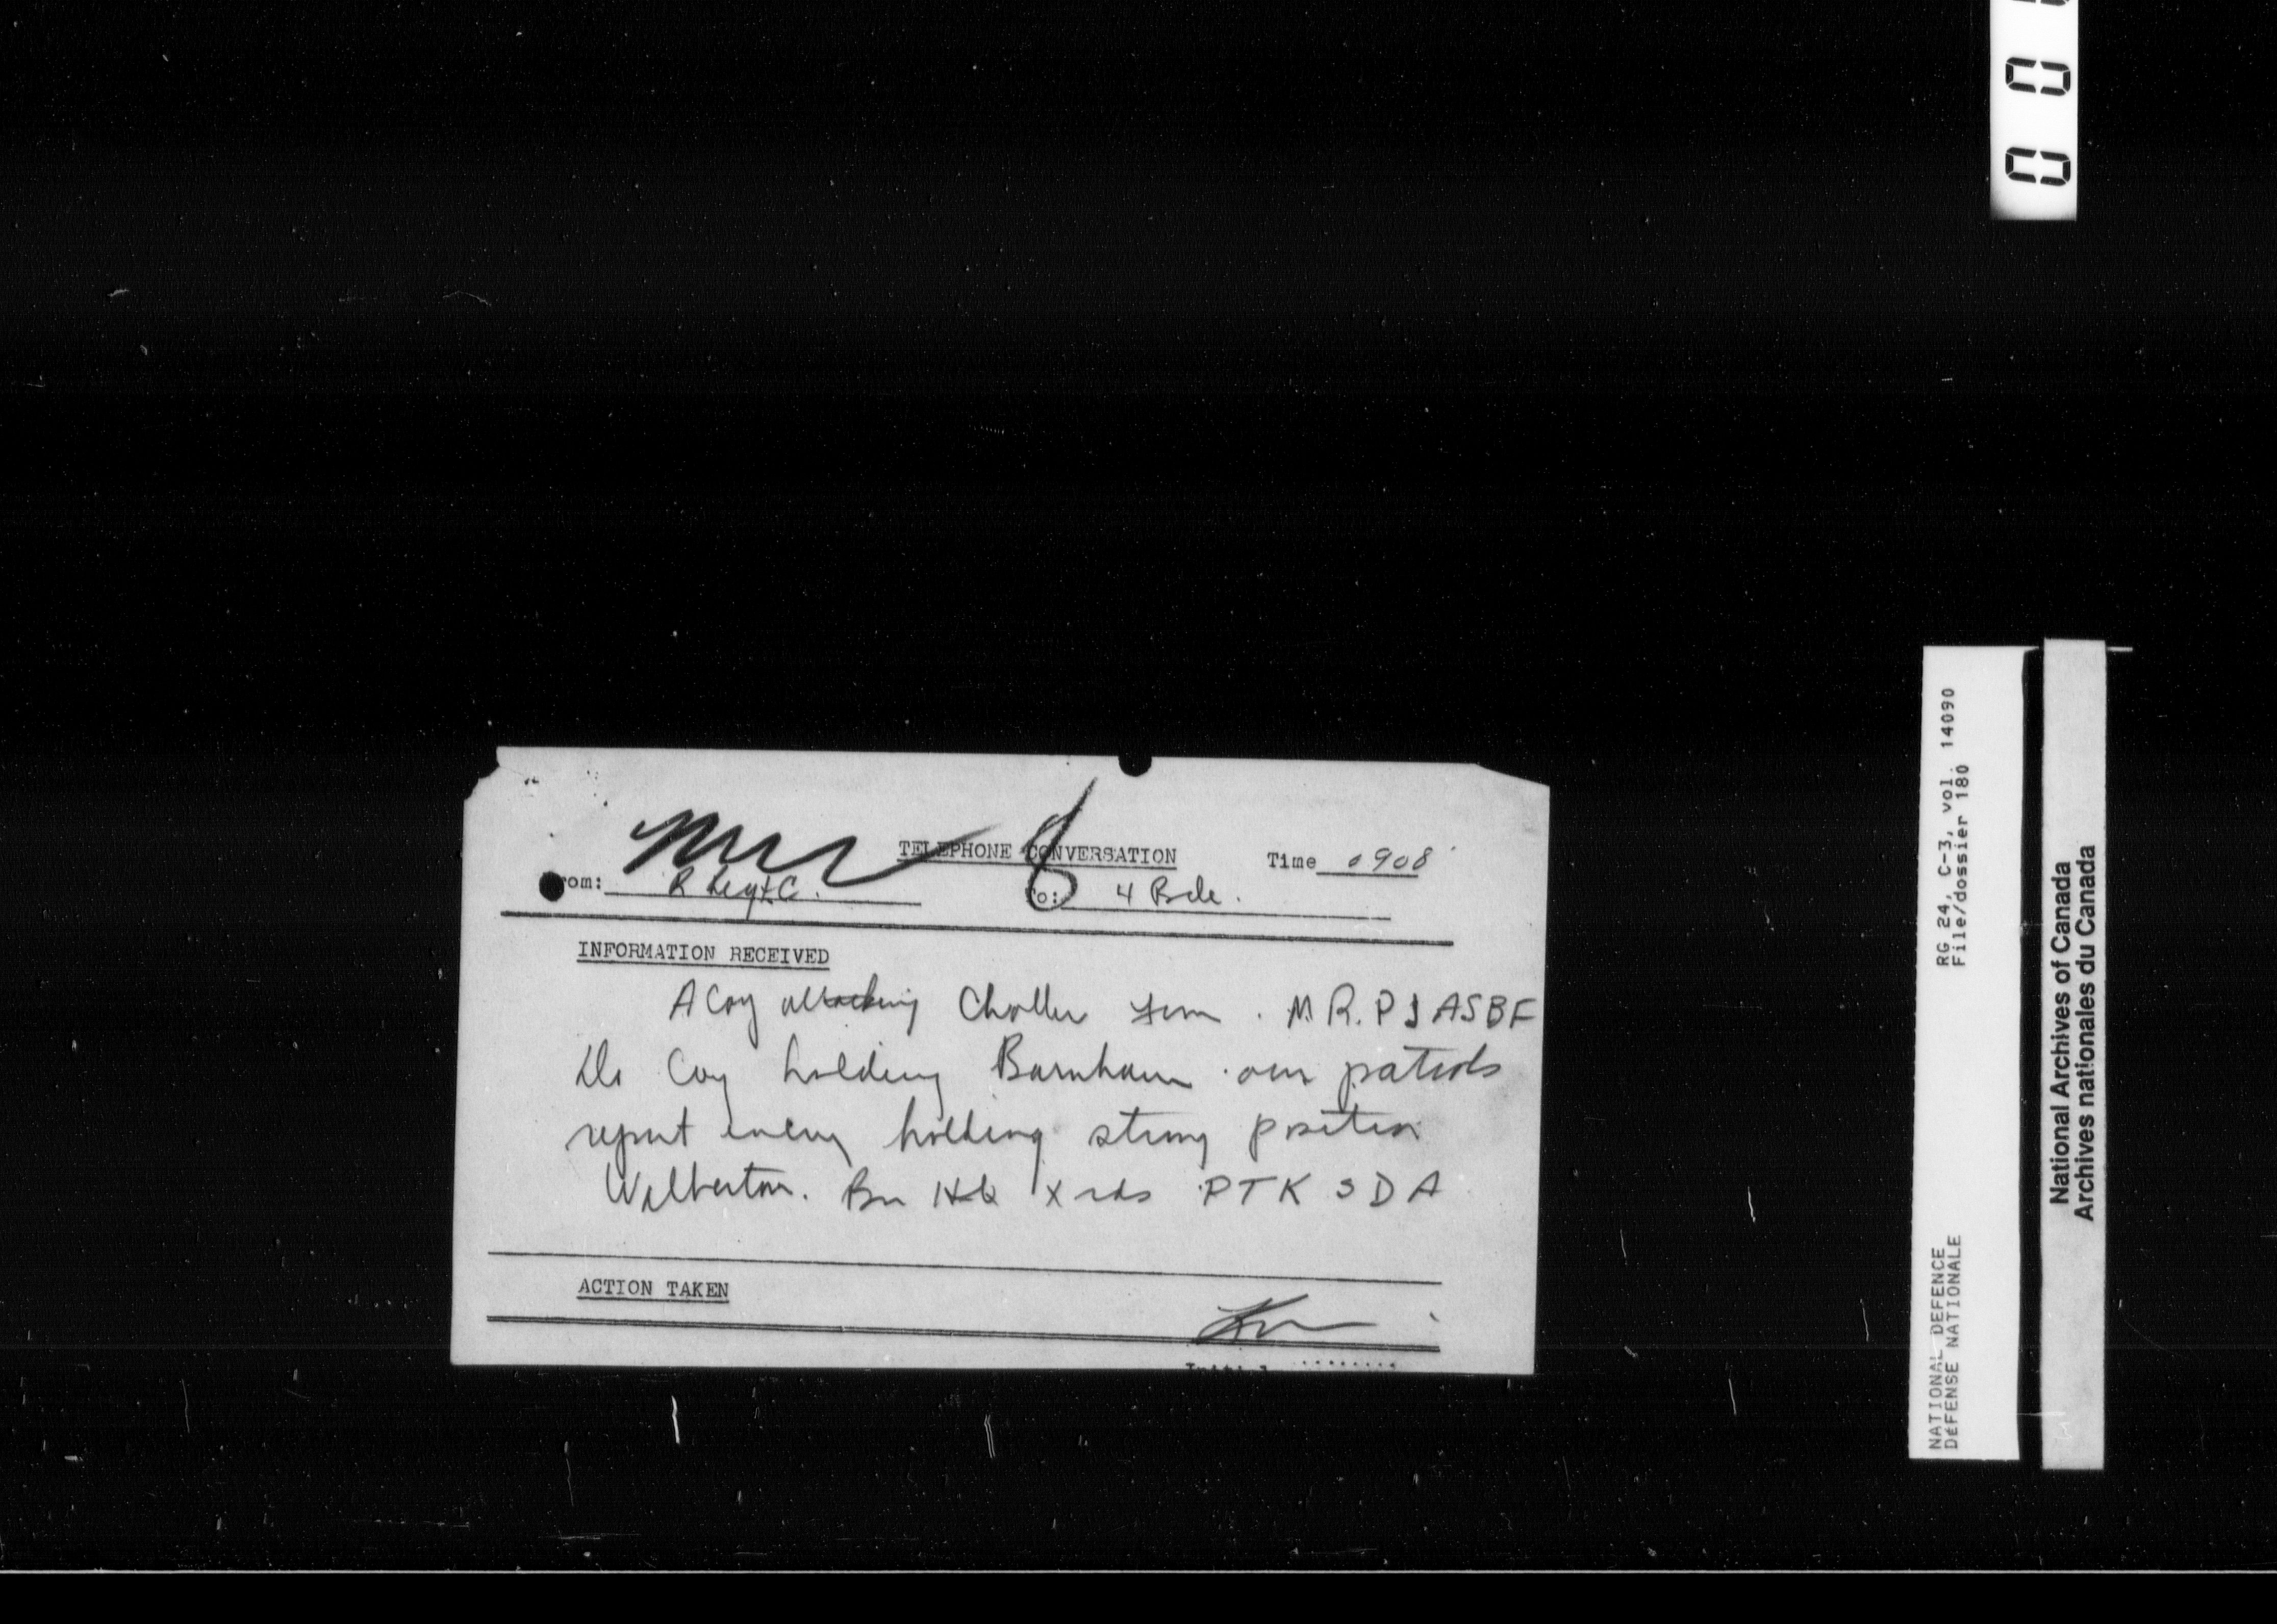 TELEPHONE CONVERSATION Time 0908
From: R Regt C. To: 4 Bde.
INFORMATION RECEIVED
A Coy attacking Choller . M.R. P J ASBF
Coy holding Barnham . our patrols
report enemy holding strong position
Walberton. Bn HQ X rds PTK SDA
ACTION TAKEN
Initial ........
RG 24, C-3, vol. 14090
File/dossier 180
NATIONAL DEFENCE
DÉFENSE NATIONALE
National Archives of Canada
Archives nationales du Canada